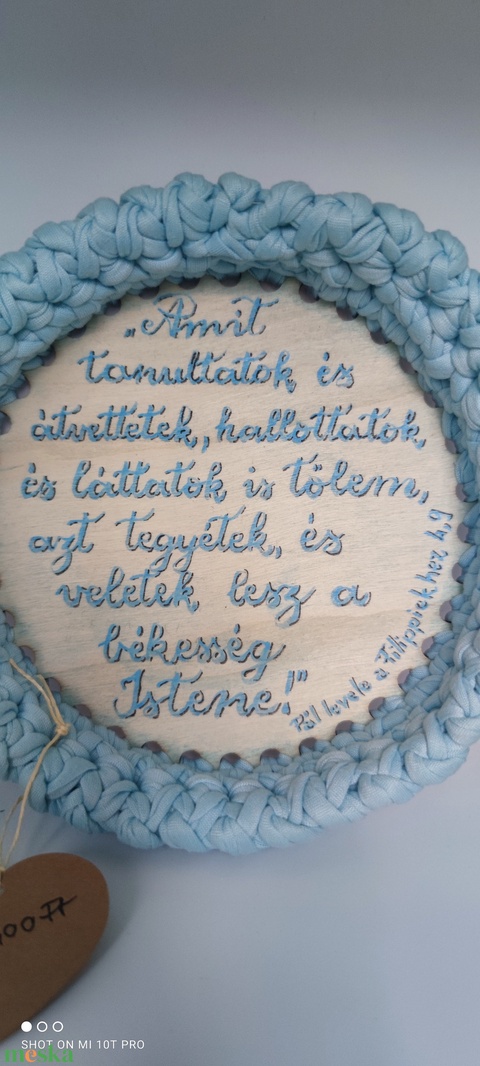 „Amit
tanultatok és
átvettetek, hallottatok,
és láttatok is tőlem,
azt tegyétek, és
veletek lesz a
békesség
Istene!”
Pál levele a Filippiekhez 4,9
00 Ft
SHOT ON MI 10T PRO
meska